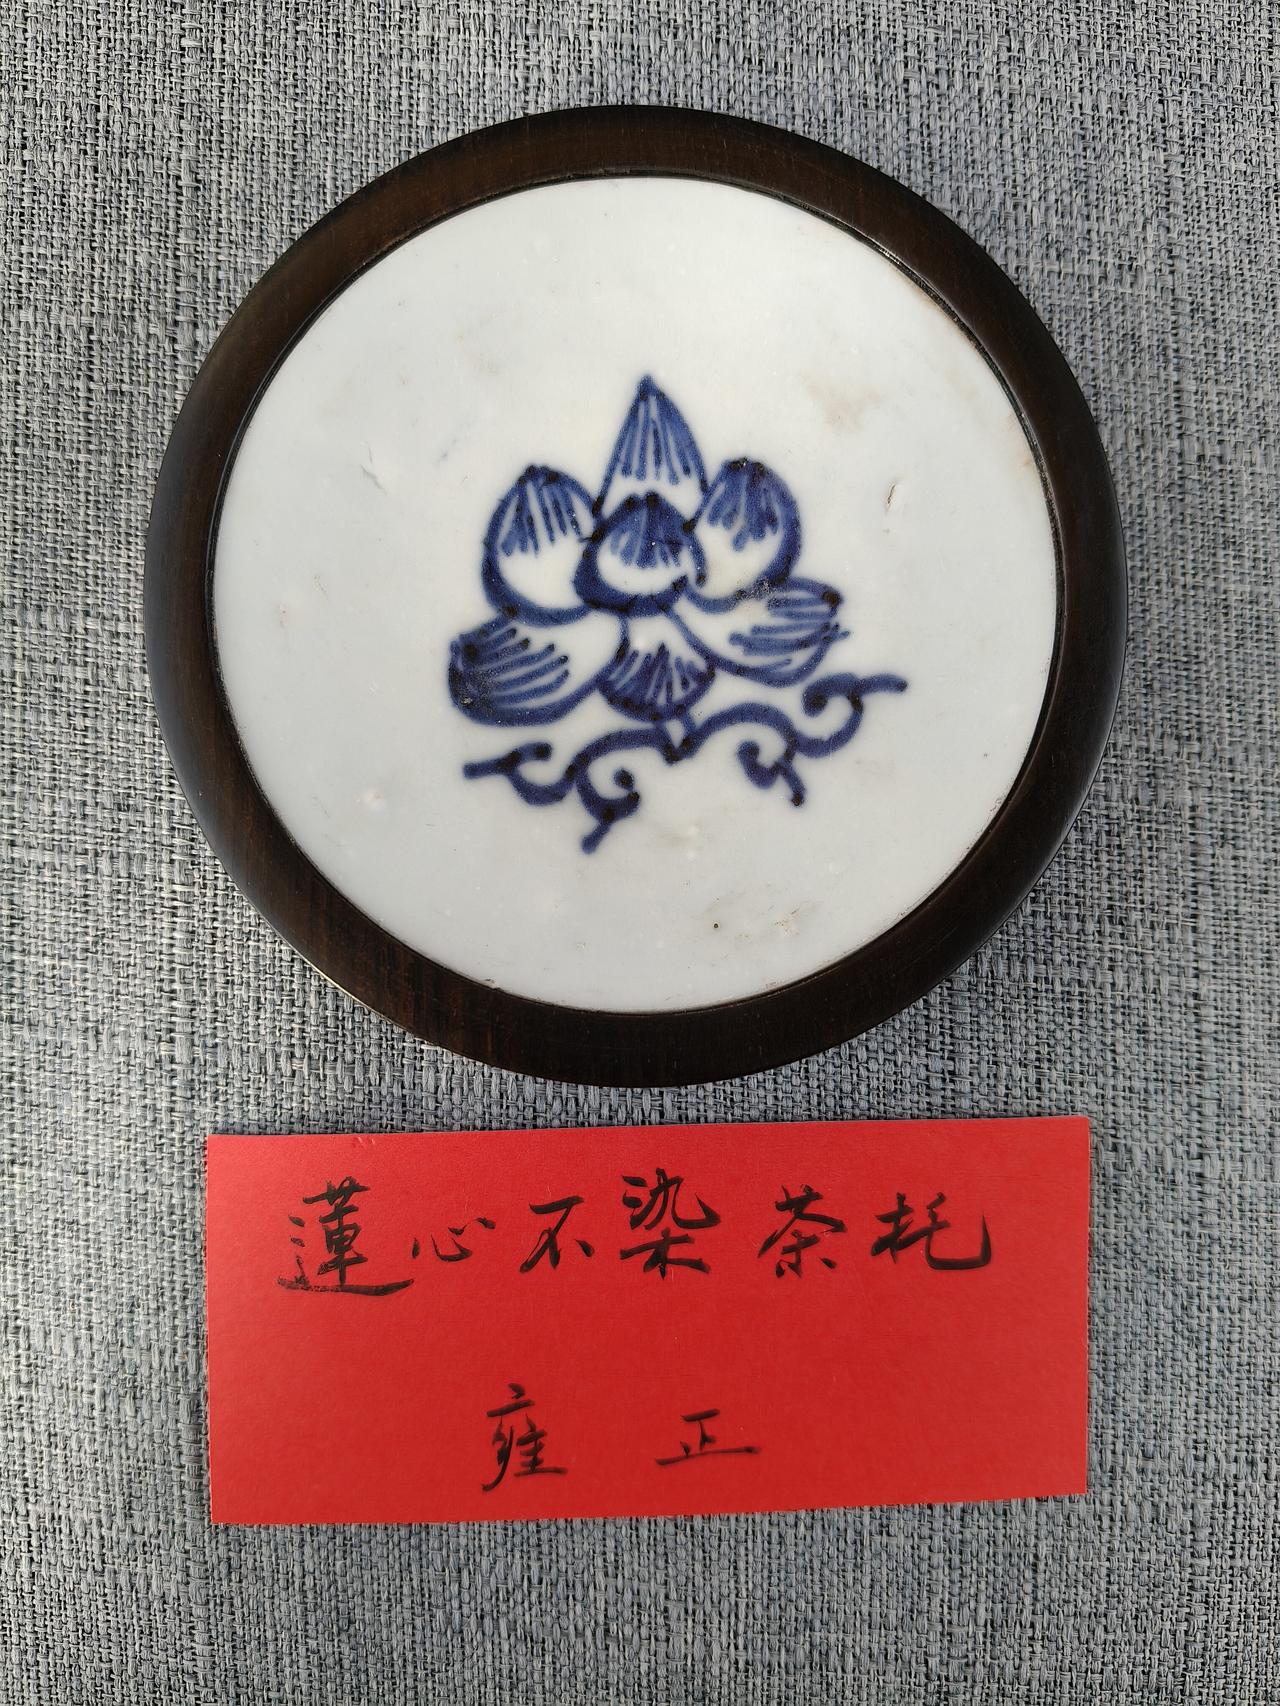 蓮心不染茶托
雍正